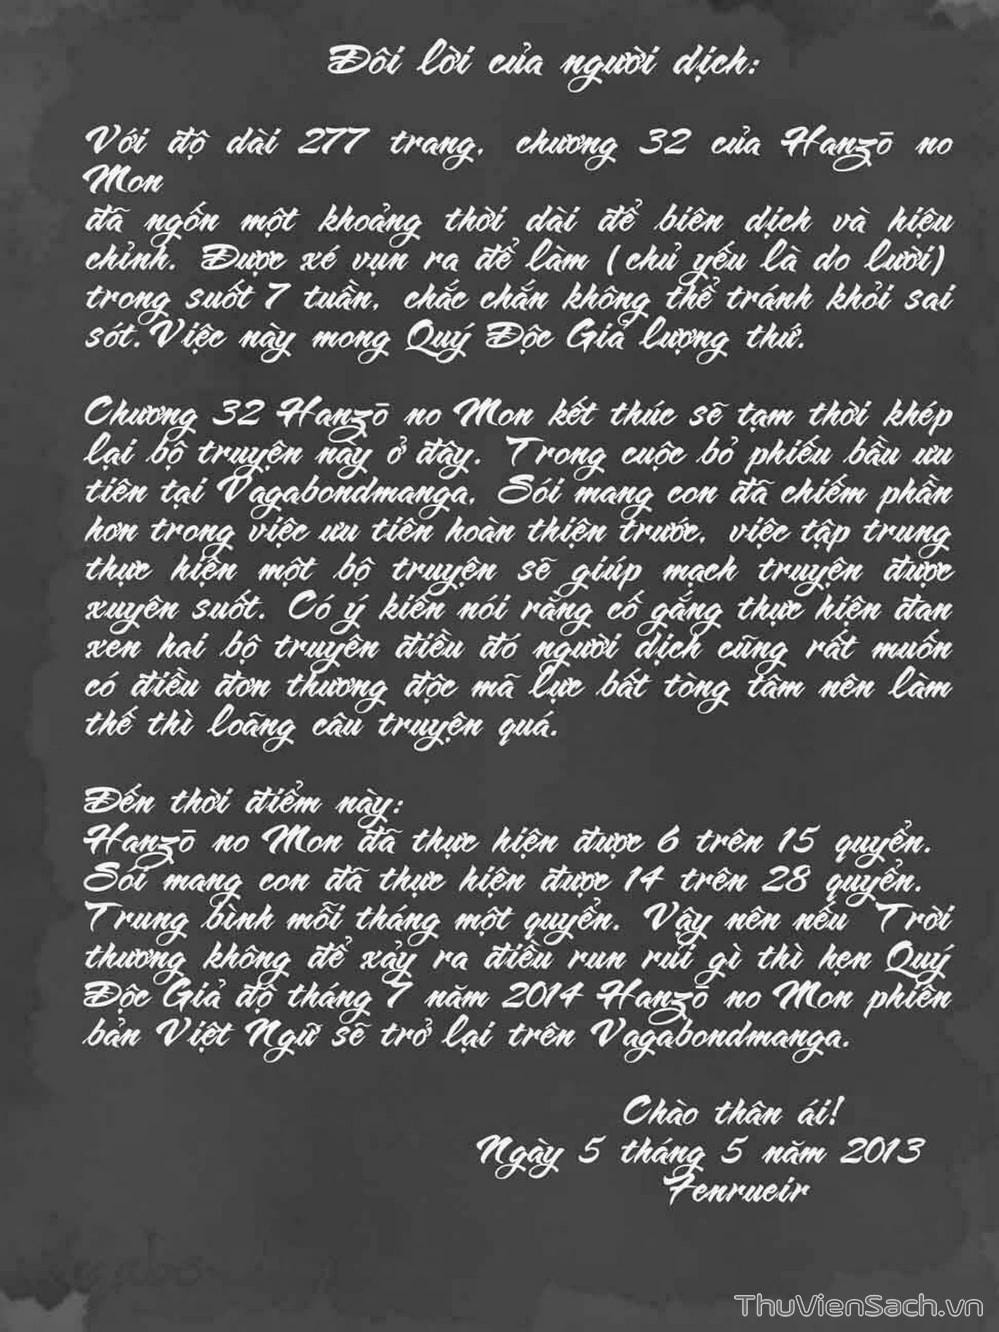 Đôi lời của người dịch:
Với độ dài 277 trang, chương 32 của Hanzō no
Mon
đã ngốn một khoảng thời dài để biên dịch và hiệu
chỉnh. Được xé vụn ra để làm (chủ yếu là do lười)
trong suốt 7 tuần, chắc chắn không thể tránh khỏi sai
sót. Việc này mong Quý Độc Giả lượng thứ.
Chương 32 Hanzō no Mon kết thúc sẽ tạm thời khép
lại bộ truyện này ở đây. Trong cuộc bỏ phiếu bầu ưu
tiên tại Vagabondmanga, Sói mang con đã chiếm phần
hơn trong việc ưu tiên hoàn thiện trước, việc tập trung
thực hiện một bộ truyện sẽ giúp mạch truyện được
xuyên suốt. Có ý kiến nói rằng cố gắng thực hiện đan
xen hai bộ truyện điều đó người dịch cũng rất muốn
có điều đơn thương độc mã lực bất tòng tâm nên làm
thế thì loãng câu truyện quá.
Đến thời điểm này:
Hanzō no Mon đã thực hiện được 6 trên 15 quyển.
Sói mang con đã thực hiện được 14 trên 28 quyển.
Trung bình mỗi tháng một quyển. Vậy nên nếu Trời
thương không để xảy ra điều run rủi gì thì hẹn Quý
Độc Giả độ tháng 7 năm 2014 Hanzō no Mon phiên
bản Việt Ngữ sẽ trở lại trên Vagabondmanga.
Chào thân ái!
Ngày 5 tháng 5 năm 2013
Fenrueir
ThuVienSach.vn